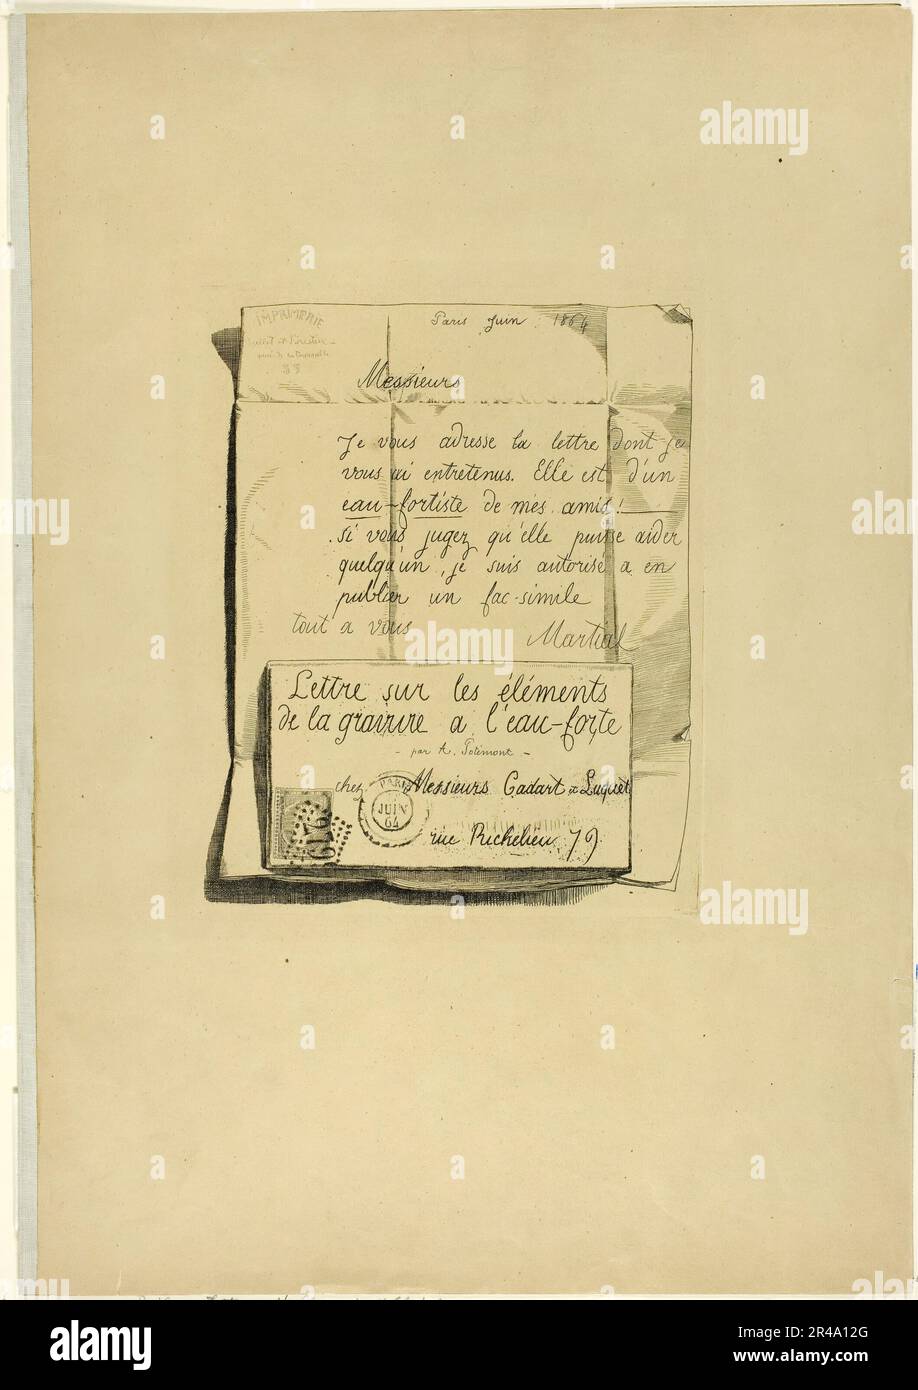 IMPRIMERIE
Paris Juin 1864
Messieurs
Je vous adresse la lettre dont je
vous ai entretenus. Elle est d'un
eau-fortiste de mes amis!
Si vous jugez qu'elle puisse aider
quelqu'un, je suis autorisé a en
publier un fac-simile
tout a vous Martial
Lettre sur les éléments
de la gravure a l'eau-forte
- par A. Potémont -
chez Messieurs Cadart & Luquet
PARIS
JUIN
64
rue Richelieu, 79
alamy
Image ID: 2R4A12G
www.alamy.com